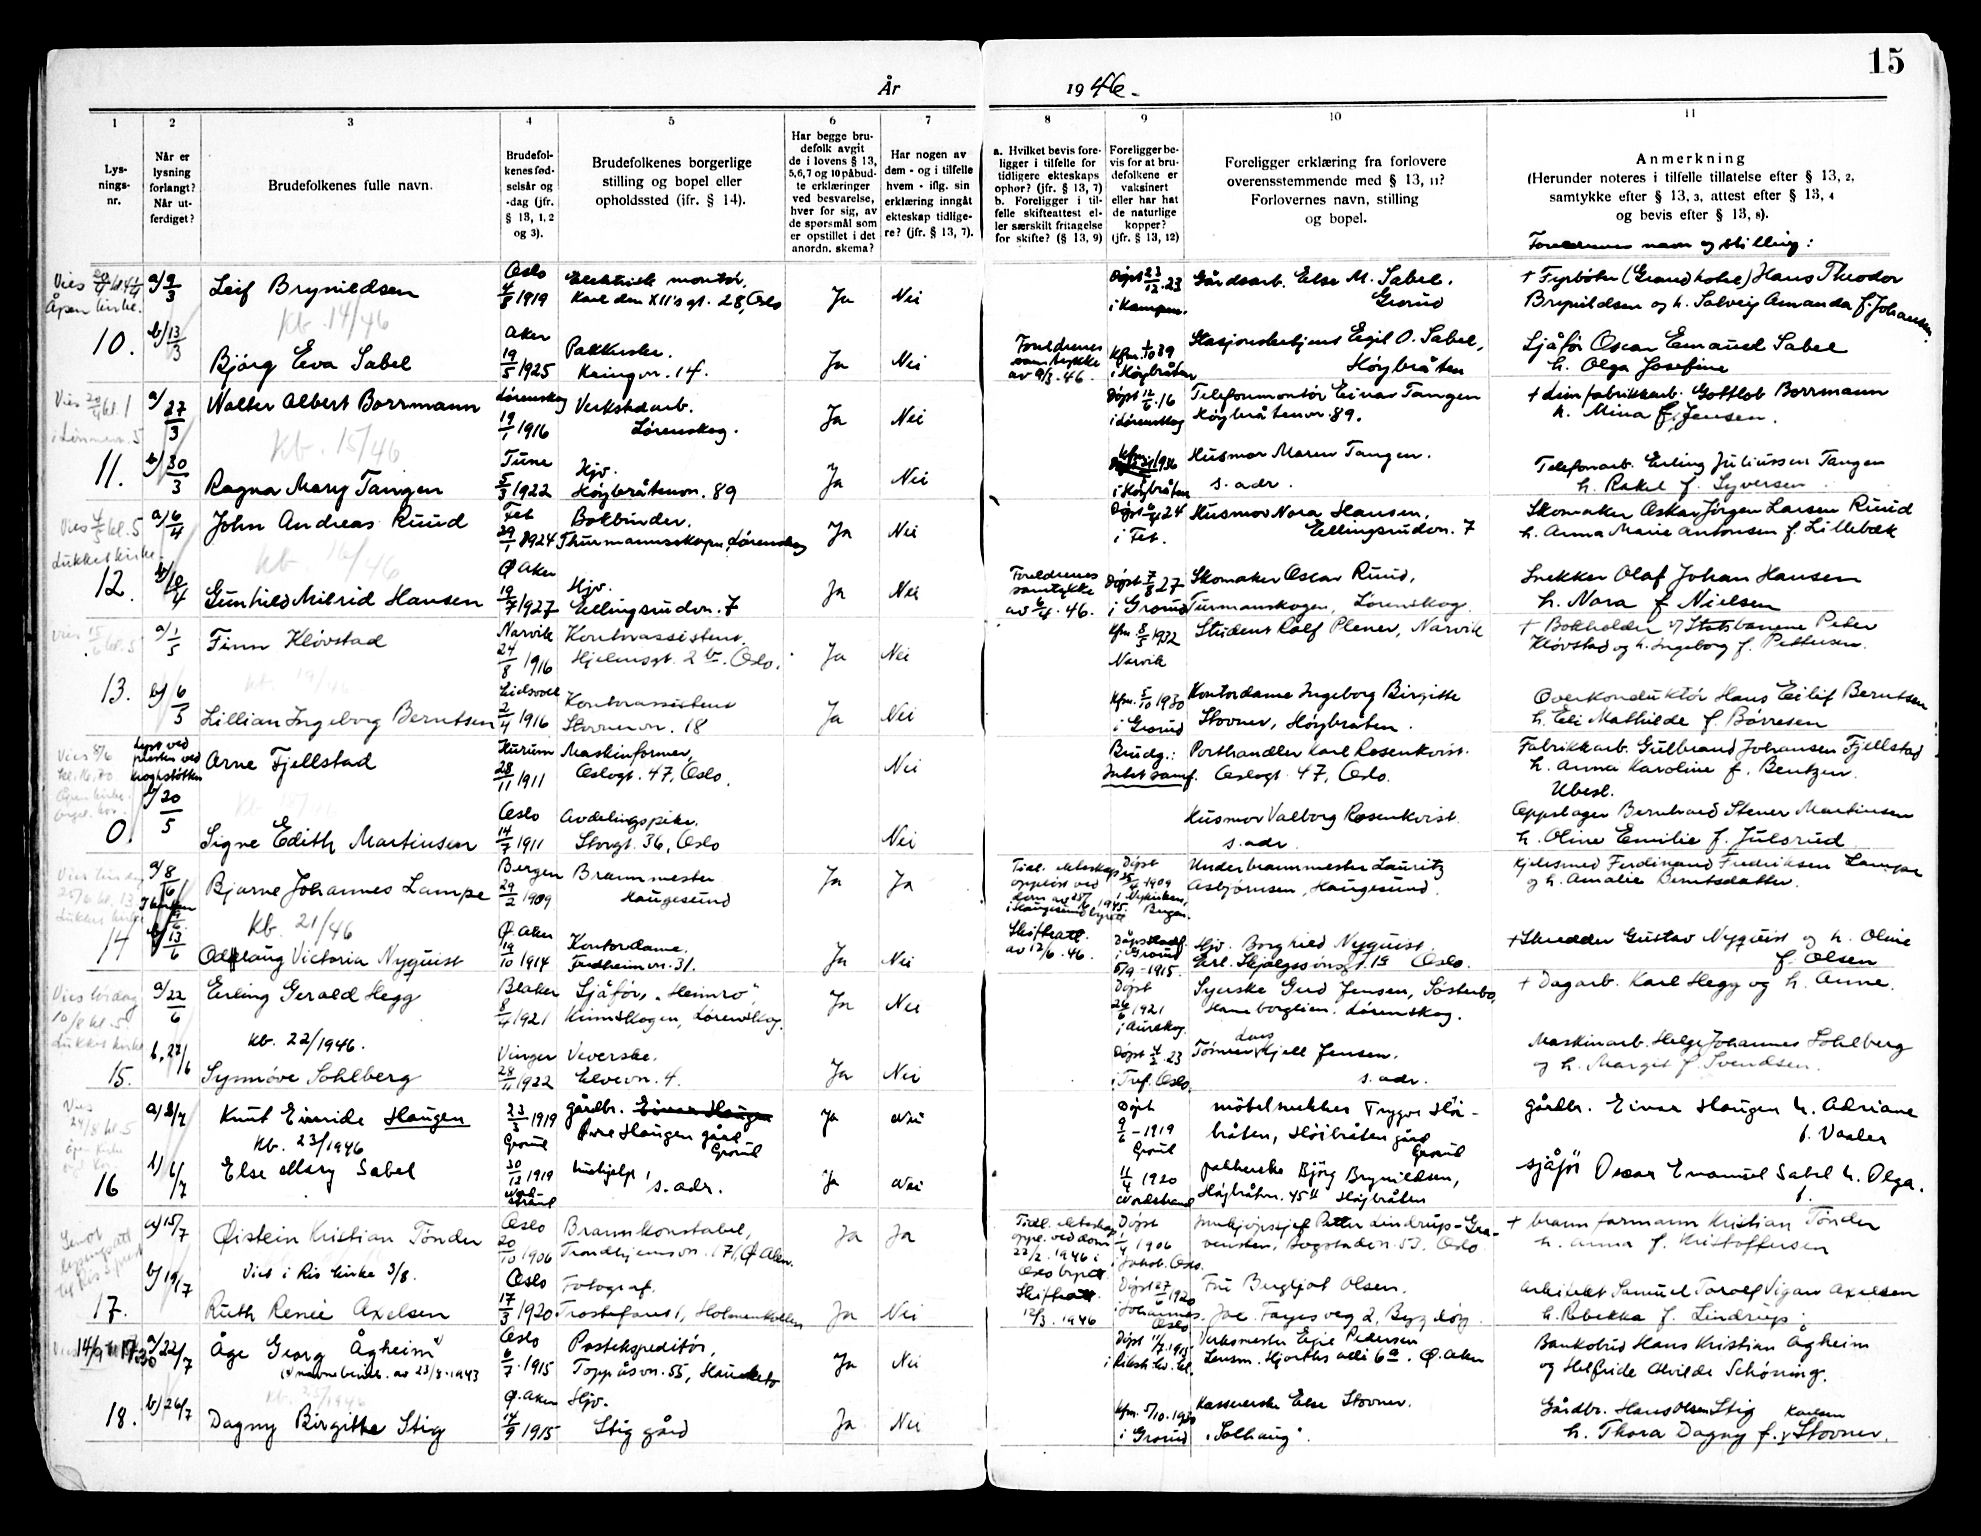 15
År 1946.
1 2 3 4 5 6 7 8 9 10 11
Lys-
nings-
nr.
Når er
lysning
forlangt?
Når ut-
ferdiget?
Brudefolkenes fulle navn.
Brudefol-
kenes fød-
selsår og
-dag (jfr.
§ 13, 1, 2
og 3).
Brudefolkenes borgerlige
stilling og bopel eller
opholdssted (jfr. § 14).
Har begge bru-
defolk avgit
de i lovens § 13,
5,6,7 og 10 påbud-
te erklæringer
ved besvarelse,
hver for sig, av
de spørsmål som
er opstillet i det
anordn. skema?
Har nogen av
dem - og i tilfelle
hvem - iflg. sin
erklæring inngåt
ekteskap tidlige-
re? (jfr. § 13, 7).
a. Hvilket bevis fore-
ligger i tilfelle for
tidligere ekteskaps
ophør? (jfr. § 13, 7)
b. Foreligger i til-
felle skifteattest el-
ler særskilt fritagelse
for skifte? (§ 13, 9)
Foreligger be-
vis for at bru-
defolkene er
vaksinert
eller har hat
de naturlige
kopper?
(jfr. § 13, 12)
Foreligger erklæring fra forlovere
overensstemmende med § 13, 11?
Forlovernes navn, stilling
og bopel.
Anmerkning
(Herunder noteres i tilfelle tillatelse efter § 13, 2,
samtykke efter § 13, 3, attest efter § 13, 4
og bevis efter § 13, 8).
Foreldrenes navn og stilling:
Åpen kirke.
10.
a) 9/3
Leif Brynildsen
Oslo
4/8 1919
Elektrisk montør,
Karl den XII's gt. 28, Oslo
Ja
Nei
Døpt 23/12.23
i Kampen.
Gårdsarb. Else M. Sabel.
Grorud
+ Fyrbøter (Grand hotel) Hans Theodor
Brynildsen og h. Solveig Amanda f. Johansen.
kb. 14/46
b) 13/3
Bjørg Eva Sabel
Aker
19/5 1925
Pakkerske.
Kringvn. 14.
Ja
Nei
Foreldrenes
samtykke
av 9/3.46.
Kfm. 1/10 39
i Høybråten
Stasjonsbetjent Egil O. Sabel,
Høybråten
Sjåfør Oscar Emanuel Sabel
h. Olga Josefine
11.
a) 27/3
Walter Albert Borrmann
Lørenskog
19/1 1916
Verkstedarb.
Lørenskog.
Ja
Nei
Døpt 12/6.16
i Lørenskog
Telefonmontør Einar Tangen
Høybråtenvn. 89.
+ Limfabrikkarb. Gottlob Borrmann
h. Mina f. Jensen.
kb. 15/46
b) 30/3
Ragna Mary Tangen
Tune
5/3 1922
Hjv.
Høybråtenvn. 89
Ja
Nei
Kfm.
i Høybråten
Husmor Maren Tangen.
s. adr.
Telefonarb. Erling Juliussen Tangen
h. Rakel f. Syversen
Lukket kirke.
12.
a) 6/4
John Andreas Ruud
Fet
29/1 1924
Bokbinder.
Thurmannsskogen, Lørenskog
Ja
Nei
i Fet.
Husmor Nora Hansen,
Ellingsrudvn. 7
Skomaker Oskar Jørgen Larsen Ruud
h. Anna Marie Antonsen f. Lillebæk
kb. 16/46
b) 10/4
Gunhild Milrid Hansen
Ø. Aker
19/7 1927
Hjv.
Ellingsrudvn. 7
Ja
Nei
Foreldrenes
samtykke
av 6/4.46.
Døpt 7/8 27
i Grorud
Skomaker Oscar Ruud,
Turmanskogen, Lørenskog.
Snekker Olaf Johan Hansen
h. Nora f. Nielsen
13.
a) 1/5
Finn Kløvstad
Narvik
24/8 1916
Kontorassistent.
Hjelmsgt. 2 b. Oslo.
Ja
Nei
Kfm. 8/5 1932
Narvik
Student Rolf Plener, Narvik
+ Bokholder v/ Statsbanene Peter
Kløvstad og h. Ingeborg f. Pettersen.
b) 6/5
Lillian Ingeborg Berntsen
Eidsvoll
2/4 1916
Kontorassistent
Stovnervn. 18
Ja
Nei
Kfm. 5/10 1930
i Grorud
Kontordame Ingeborg Birgitte
Stovner, Høybråten.
Overkonduktør Hans Eilif Berntsen
h. Eli Mathilde f. Børresen
0.
Lyst ved
presten ved
Krohgstøtten
20/5
Arne Fjellstad
Hurum
28/11 1911
Maskinformer,
Oslogt. 47, Oslo.
Nei
Brudg.:
Intet samf.
Porthandler Karl Rosenkvist.
Oslogt. 47, Oslo.
Fabrikkarb. Gulbrand Johansen Fjellstad
h. Anna Karoline f. Bentzen.
Signe Edith Martinsen
Oslo
14/7 1911
Avdelingspike.
Storgt. 36, Oslo
Nei
Husmor Valborg Rosenkvist.
s. adr.
Ubesl.
Oppslager Bernhard Stener Martinsen
h. Oline Emilie f. Julsrud
14
a) 8/6
Bjarne Johannes Lampe
Bergen
29/2 1909
Brannmester
Haugesund
Ja
Ja
Tidl. ekteskap
oppløst ved
i Haugesund byrett
Døpt
i Nykirken,
Bergen.
Underbrannmester Lauritz
Asbjørnsen, Haugesund.
Kjelesmed Ferdinand Fredriksen Lampe
og h. Amalie Berntsdatter.
kb. 21/46
b) 13/6
Oddlaug Victoria Nyquist
Ø. Aker
19/10 1914
Kontordame.
Fredheimvn. 31.
Ja
Nei
Skifteatt.
av 12/6.46.
i Grorud
5/9-1915.
Hjv. Borghild Nyquist.
Erl. Skjalgssønsgt. 19 Oslo.
+ Skredder Gustav Nyquist og h. Oline
f. Olsen
Vies lørdag
10/8 kl. 5
Lukket kirke
15.
a) 22/6
Erling Gerald Hegg
Blaker
8/4 1921
Sjåfør, "Heimro",
Kinnskogen, Lørenskog.
Ja
Nei
Døpt
26/6 1921
i Aurskog
Syerske Gerd Jensen, Solsterbo,
Haneborglien. Lørenskog.
+ Dagarb. Karl Hegg og h. Anne.
kb. 22/1946.
b. 27/6
Synnøve Sohlberg
Vinger
28/11 1922
Veverske.
Elvevn. 4.
Ja
Nei
Døpt 4/2.23
i Tref. Oslo.
Kjell Jensen.
s. adr.
Maskinarb. Helge Johannes Sohlberg
og h. Margit f. Svendsen
Vies
24/8 kl. 5
16
a) 3/7
Knut Eivinde Haugen
23/3 1919
Grorud
gårdbr. Einar Haugen
Øvre Haugen gård
Grorud
Ja
Nei
Døpt
9/6-1919
Grorud
møbelsnekker Trygve Høi-
bråten, Høibråten gård
Grorud
gårdbr. Einar Haugen h. Adriane
f. Vaaler
kb. 23/1946
b) 6/7
Else Mary Sabel
30/12 1919
Nord-
strand
hushjelp,
s. adr.
Ja
Nei
11/4 1920
Nordstrand
pakkerske Bjørg Brynildsen,
Høybråtvn. 45 Høybråten
sjåfør Oscar Emanuel Sabel h. Olga.
f.
17.
a) 15/7
Øistein Kristian Tønder
Oslo
20/10 1906
Brannkonstabel,
Trondhjemsvn. 171, Ø. Aker.
Ja
Ja
Tidl. ekteskap
oppl. ved dom
22/2. 1946 i
Oslo byrett.
Døpt
1/4 1906
i Jakob. Oslo.
Innkjøpssjef Petter Lindrup-Gra-
vensten, Bogstadvn. 53. Oslo
+ brannformann Kristian Tønder
h. Anna f. Kristoffersen
Viet i Ris kirke 3/8.
b) 19/7
Ruth Renée Axelsen
Oslo
17/3 1920
Fotograf.
Trostefaret 1, Holmenkollen
Ja
Nei
Skifteatt.
12/3. 1946
Døpt 27/ 1920
i Johannes
Oslo
Fru Bergljot Olsen.
Joac. Fayes veg 2, Bygdøy.
Arkitekt Samuel Torolf Vigaro Axelsen
h. Rebekka f. Lindrup
14/9
18.
a) 22/7
Åge Georg Ågheim
(navnebevil. av 23/8.1943
Oslo
6/7.1915
Postekspeditør,
Toppåsvn. 55, Hauketo
Ja
Nei
Døpt 11/7.1915
i Rikshosp. kl.
Verksmester Egil Pedersen
Lensm. Hjorths alle 6a. Ø. Aker
Bankbud Hans Kristian Ågheim
og Helfride Alvilde Schøning.
b) 26/7
Dagny Birgitte Stig
Ø. Aker
14/9 1915
Hjv.
Stig gård
Ja
Nei
Kfm. 5/10.1930
i Grorud
Kassererske Else Stovner.
"Solhaug".
Gårdbr. Hans Olsen Stig
h. Thora Dagny f. Karlsen Stovner.